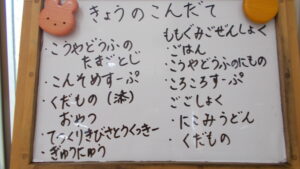 きょうのこんだて
・こうやどうふの
たまごとじ
・こんそめすーぷ
・くだもの(添)
おやつ
・てっくりきびさとうくっきー
・ぎゅうにゅう
ももぐみごぜんしょく
・ごはん
・こうやどうふのにもの
・ころころすーぷ
ごごしょく
・にこみうどん
・くだもの